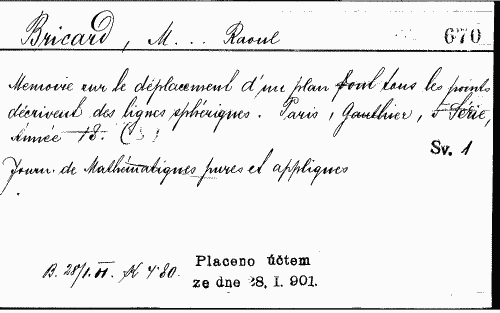 Bricard, M... Raoul 670
Memoire sur le déplacement d'un plan dont tous les points
décrivent des lignes sphériques. Paris, Gauthier, 5 Série,
Année 18.
Sv. 1
Journ. de Mathématiques pures et appliques
B. 28/1. 01. K 4.80.
Placeno účtem
ze dne 28. I. 901.